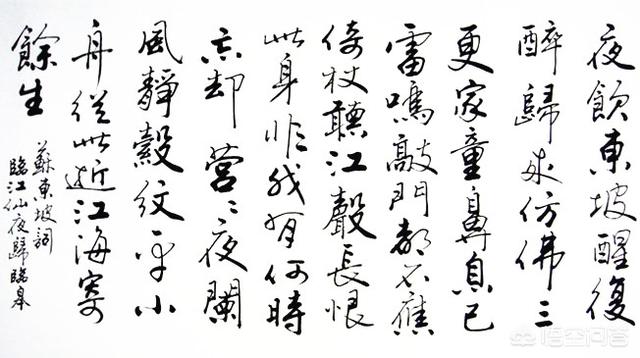 夜飲東坡醒復
醉歸來仿佛三
更家童鼻息已
雷鳴敲門都不應
倚杖聽江聲長恨
此身非我有何時
忘却營〻夜闌
風靜縠紋平小
舟從此逝江海寄
餘生
蘇東坡詞
臨江仙夜歸臨皋
悟空问答